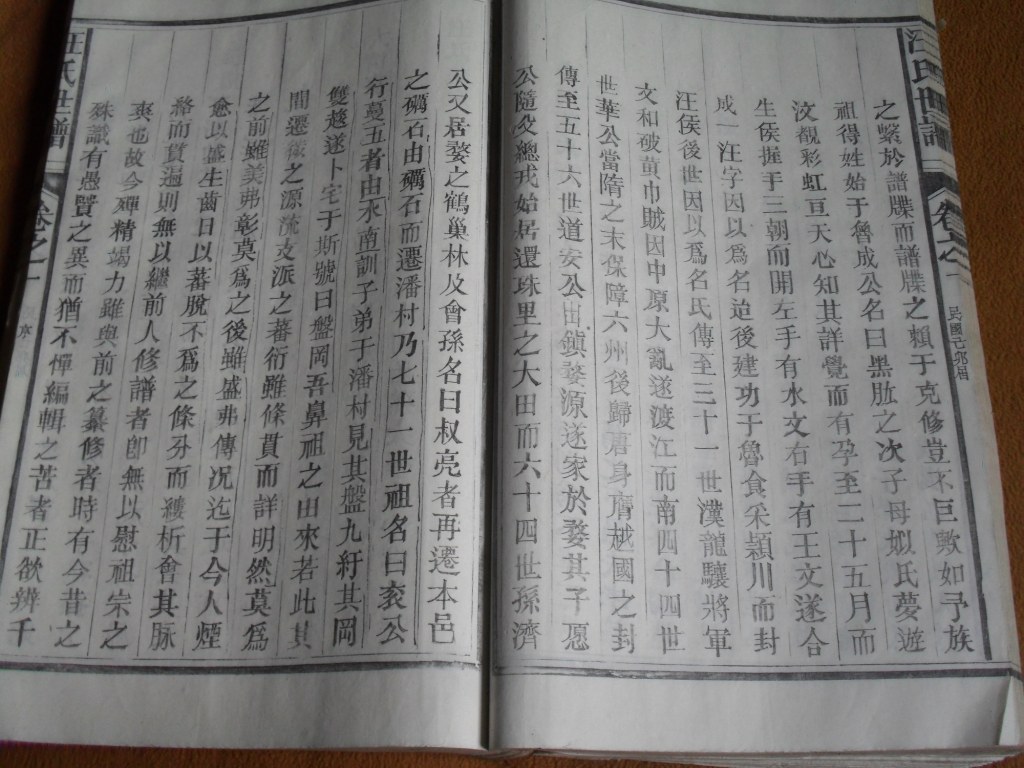 汪氏世譜
卷之一
民國己卯眉
之繫於譜牒而譜牒之賴于克修豈不巨歟如予族
祖得姓始于魯成公名曰黑肱之次子母姒氏夢遊
汶觀彩虹亘天心知其詳覺而有孕至二十五月而
生侯握手三朝而開左手有水文右手有王文遂合
成一汪字因以爲名迨後建功于魯食采潁川而封
汪侯後世因以爲名氏傳至三十一世漢龍驤將軍
文和破黃巾賊因中原大亂遂渡江而南四十四世
世華公當隋之末保障六州後歸唐身膺越國之封
傳至五十六世道安公由鎮婺源遂家於婺其子愿
公隨父總戎始居還珠里之大田而六十四世孫濟
公又居婺之鶴巢林及會孫名曰叔亮者再遷本邑
之礪石由礪石而遷潘村乃七十一世祖名曰衮公
行蔓五者由水南訓子弟于潘村見其盤九紆其岡
雙趨遂卜宅于斯號曰盤岡吾鼻祖之由來若此其
間遷徙之源流支派之蕃衍雖條貫而詳明然莫爲
之前雖美弗彰莫爲之後雖盛弗傳况迄于今人煙
愈以盛生齒日以蕃脫不爲之條分而縷析會其脉
絡而貫通則無以繼前人修譜者卽無以慰祖宗之
爽也故今殫精竭力雖與前之纂修者時有今昔之
殊識有愚賢之異而猶不憚編輯之苦者正欲辨千
汪氏世譜
卷之一